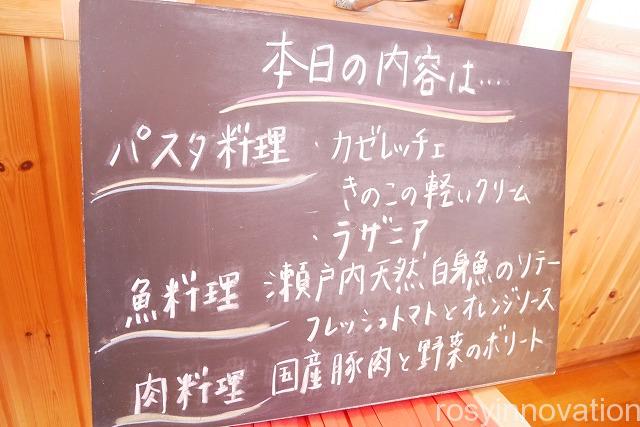 本日の内容は…
パスタ料理 ・カゼレッチェ
きのこの軽いクリーム
・ラザニア
魚料理 瀬戸内天然白身魚のソテー
フレッシュトマトとオレンジソース
肉料理 国産豚肉と野菜のボリート
rosyinnovation